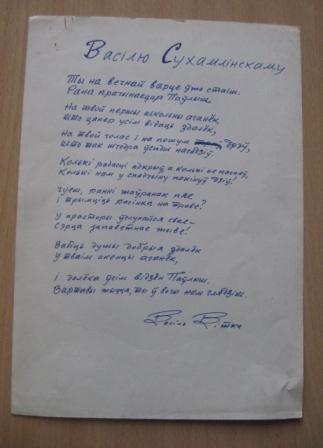 Васілю Сухамлінскаму
Ты на вечнай варце ўжо стаіш.
Рана прачынаецца Паўлыш.
На твой першы школьны аганёк,
што цяпер усім відаць здалёк,
на твой голас і на пошум дрэў,
што так шчодра ўсюды насадзіў.
Колькі радасці адкрыў, а колькі не паспеў,
Колькі нам у спадчыну пакінуў
Чуеш, ранні жаўранак пяе
і трымціць расінка на траве?
У прасторы
Сэрца запаветнае жыве!
Вабіць душы добрыя здалёк
у тваім акенцы аганёк,
і далёка ўсім відзён Паўлыш.
Вартавы жыцця, ты ў вочы нам глядзіш.
Васіль Вітка